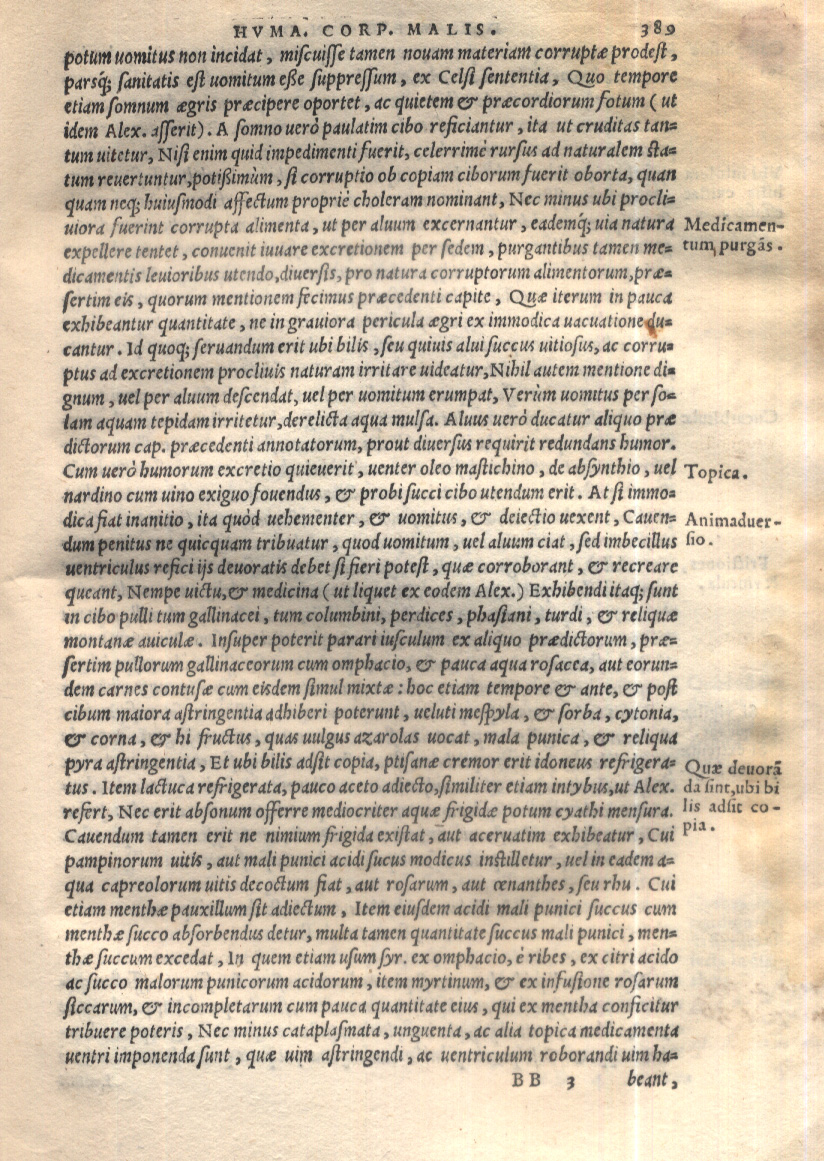 HVMA. CORP. MALIS. 389
potum uomitus non incidat, miscuisse tamen nouam materiam corruptæ prodest,
parsq́; sanitatis est uomitum eße suppressum, ex Celsi sententia, Quo tempore
etiam somnum ægris præcipere oportet, ac quietem & præcordiorum fotum (ut
idem Alex. asserit). A somno uerò paulatim cibo reficiantur, ita ut cruditas tan=
tum uitetur, Nisi enim quid impedimenti fuerit, celerrimè rursus ad naturalem sta=
tum reuertuntur, potißimùm, si corruptio ob copiam ciborum fuerit oborta, quan
quam neq; huiusmodi affectum propriè choleram nominant, Nec minus ubi procli=
uiora fuerint corrupta alimenta, ut per aluum excernantur, eademq́; uia natura
expellere tentet, conuenit iuuare excretionem per sedem, purgantibus tamen me=
dicamentis leuioribus utendo, diuersis, pro natura corruptorum alimentorum, præ=
sertim eis, quorum mentionem fecimus præcedenti capite, Quæ iterum in pauca
exhibeantur quantitate, ne in grauiora pericula ægri ex immodica uacuatione du=
cantur. Id quoq; seruandum erit ubi bilis, seu quiuis alui succus uitiosus, ac corru=
ptus ad excretionem procliuis naturam irritare uideatur, Nihil autem mentione di=
gnum, uel per aluum descendat, uel per uomitum erumpat, Verùm uomitus per so=
lam aquam tepidam irritetur, derelicta aqua mulsa. Aluus uerò ducatur aliquo præ
dictorum cap. præcedenti annotatorum, prout diuersius requirit redundans humor.
Cum uerò humorum excretio quieuerit, uenter oleo mastichino, de absynthio, uel
nardino cum uino exiguo fouendus, & probi succi cibo utendum erit. At si immo=
dica fiat inanitio, ita quòd uehementer, & uomitus, & deiectio uexent, Cauen=
dum penitus ne quicquam tribuatur, quod uomitum, uel aluum ciat, sed imbecillus
uentriculus refici ijs deuoratis debet si fieri potest, quæ corroborant, & recreare
queant, Nempe uictu, & medicina (ut liquet ex eodem Alex.) Exhibendi itaq; sunt
in cibo pulli tum gallinacei, tum columbini, perdices, phasiani, turdi, & reliquæ
montanæ auiculæ. Insuper poterit parari iusculum ex aliquo prædictorum, præ=
sertim pullorum gallinaceorum cum omphacio, & pauca aqua rosacea, aut eorun=
dem carnes contusæ cum eisdem simul mixtæ: hoc etiam tempore & ante, & post
cibum maiora astringentia adhiberi poterunt, ueluti mespyla, & sorba, cytonia,
& corna, & hi fructus, quas uulgus azarolas uocat, mala punica, & reliqua
pyra astringentia, Et ubi bilis adsit copia, ptisanæ cremor erit idoneus refrigera=
tus. Item lactuca refrigerata, pauco aceto adiecto, similiter etiam intybus, ut Alex.
refert, Nec erit absonum offerre mediocriter aquæ frigidæ potum cyathi mensura.
Cauendum tamen erit ne nimium frigida existat, aut aceruatim exhibeatur, Cui
pampinorum uitis, aut mali punici acidi sucus modicus instilletur, uel in eadem a=
qua capreolorum uitis decoctum fiat, aut rosarum, aut œnanthes, seu rhu. Cui
etiam menthæ pauxillum sit adiectum, Item eiusdem acidi mali punici succus cum
menthæ succo absorbendus detur, multa tamen quantitate succus mali punici, men=
thæ succum excedat, In quem etiam usum syr. ex omphacio, è ribes, ex citri acido
ac succo malorum punicorum acidorum, item myrtinum, & ex infusione rosarum
siccarum, & incompletarum cum pauca quantitate eius, qui ex mentha conficitur
tribuere poteris, Nec minus cataplasmata, unguenta, ac alia topica medicamenta
uentri imponenda sunt, quæ uim astringendi, ac uentriculum roborandi uim ha=
BB 3 beant,
Medicamen-
tum purgãs.
Topica.
Animaduer-
sio.
Quæ deuorã
da sint, ubi bi
lis adsit co-
pia.